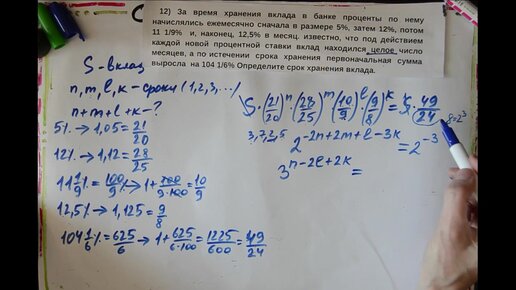 12) За время хранения вклада в банке проценты по нему
начислялись ежемесячно сначала в размере 5%, затем 12%, потом
11 1/9% и, наконец, 12,5% в месяц. известно, что под действием
каждой новой процентной ставки вклад находился целое число
месяцев, а по истечении срока хранения первоначальная сумма
выросла на 104 1/6% Определите срок хранения вклада.
S - вклад
n, m, l, k - сроки (1, 2, 3, ...)
n+m+l+k - ?
5% → 1,05 = 21/20
12% → 1,12 = 28/25
11 1/9 % = 100/9 % → 1 + 100/(9·100) = 10/9
12,5% → 1,125 = 9/8
104 1/6 % = 625/6 → 1 + 625/(6·100) = 1225/600 = 49/24
S·(21/20)^n·(28/25)^m·(10/9)^l·(9/8)^k = S·49/24
8=2^3
3,7,2,5
2^(-2n+2m+l-3k) = 2^(-3)
3^(n-2l+2k) =